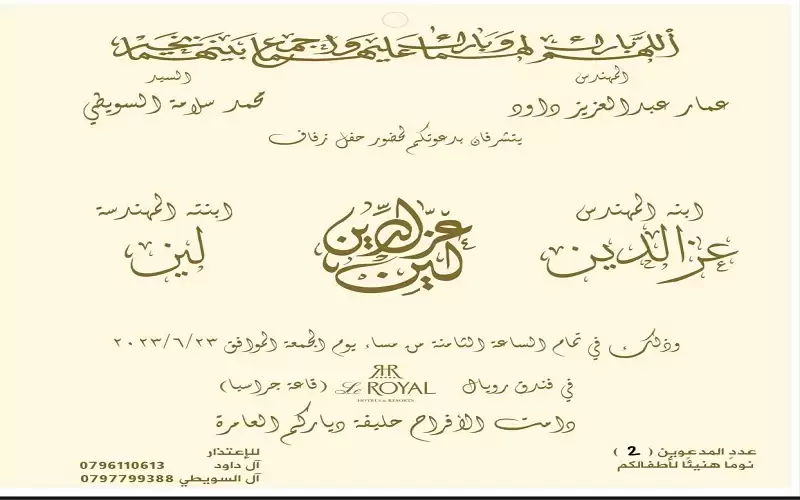 اللهم بارك لهما وبارك عليهما واجمع بينهما بخير
المهندس
عمار عبدالعزيز داود
السيد
محمد سلامة السويطي
يتشرفان بدعوتكم لحضور حفل زفاف
ابنه المهندس
عزالدين
عز الدين
لين
ابنته المهندسة
لين
وذلك في تمام الساعة الثامنة من مساء يوم الجمعة الموافق ٢٠٢٣/٦/٢٣
في فندق رويال Le ROYAL (قاعة جراسيا)
HOTELS & RESORTS
دامت الأفراح حليفة دياركم العامرة
عدد المدعوين ( 2 )
نومًا هنيئًا لأطفالكم
للإعتذار
آل داود 0796110613
آل السويطي 0797799388